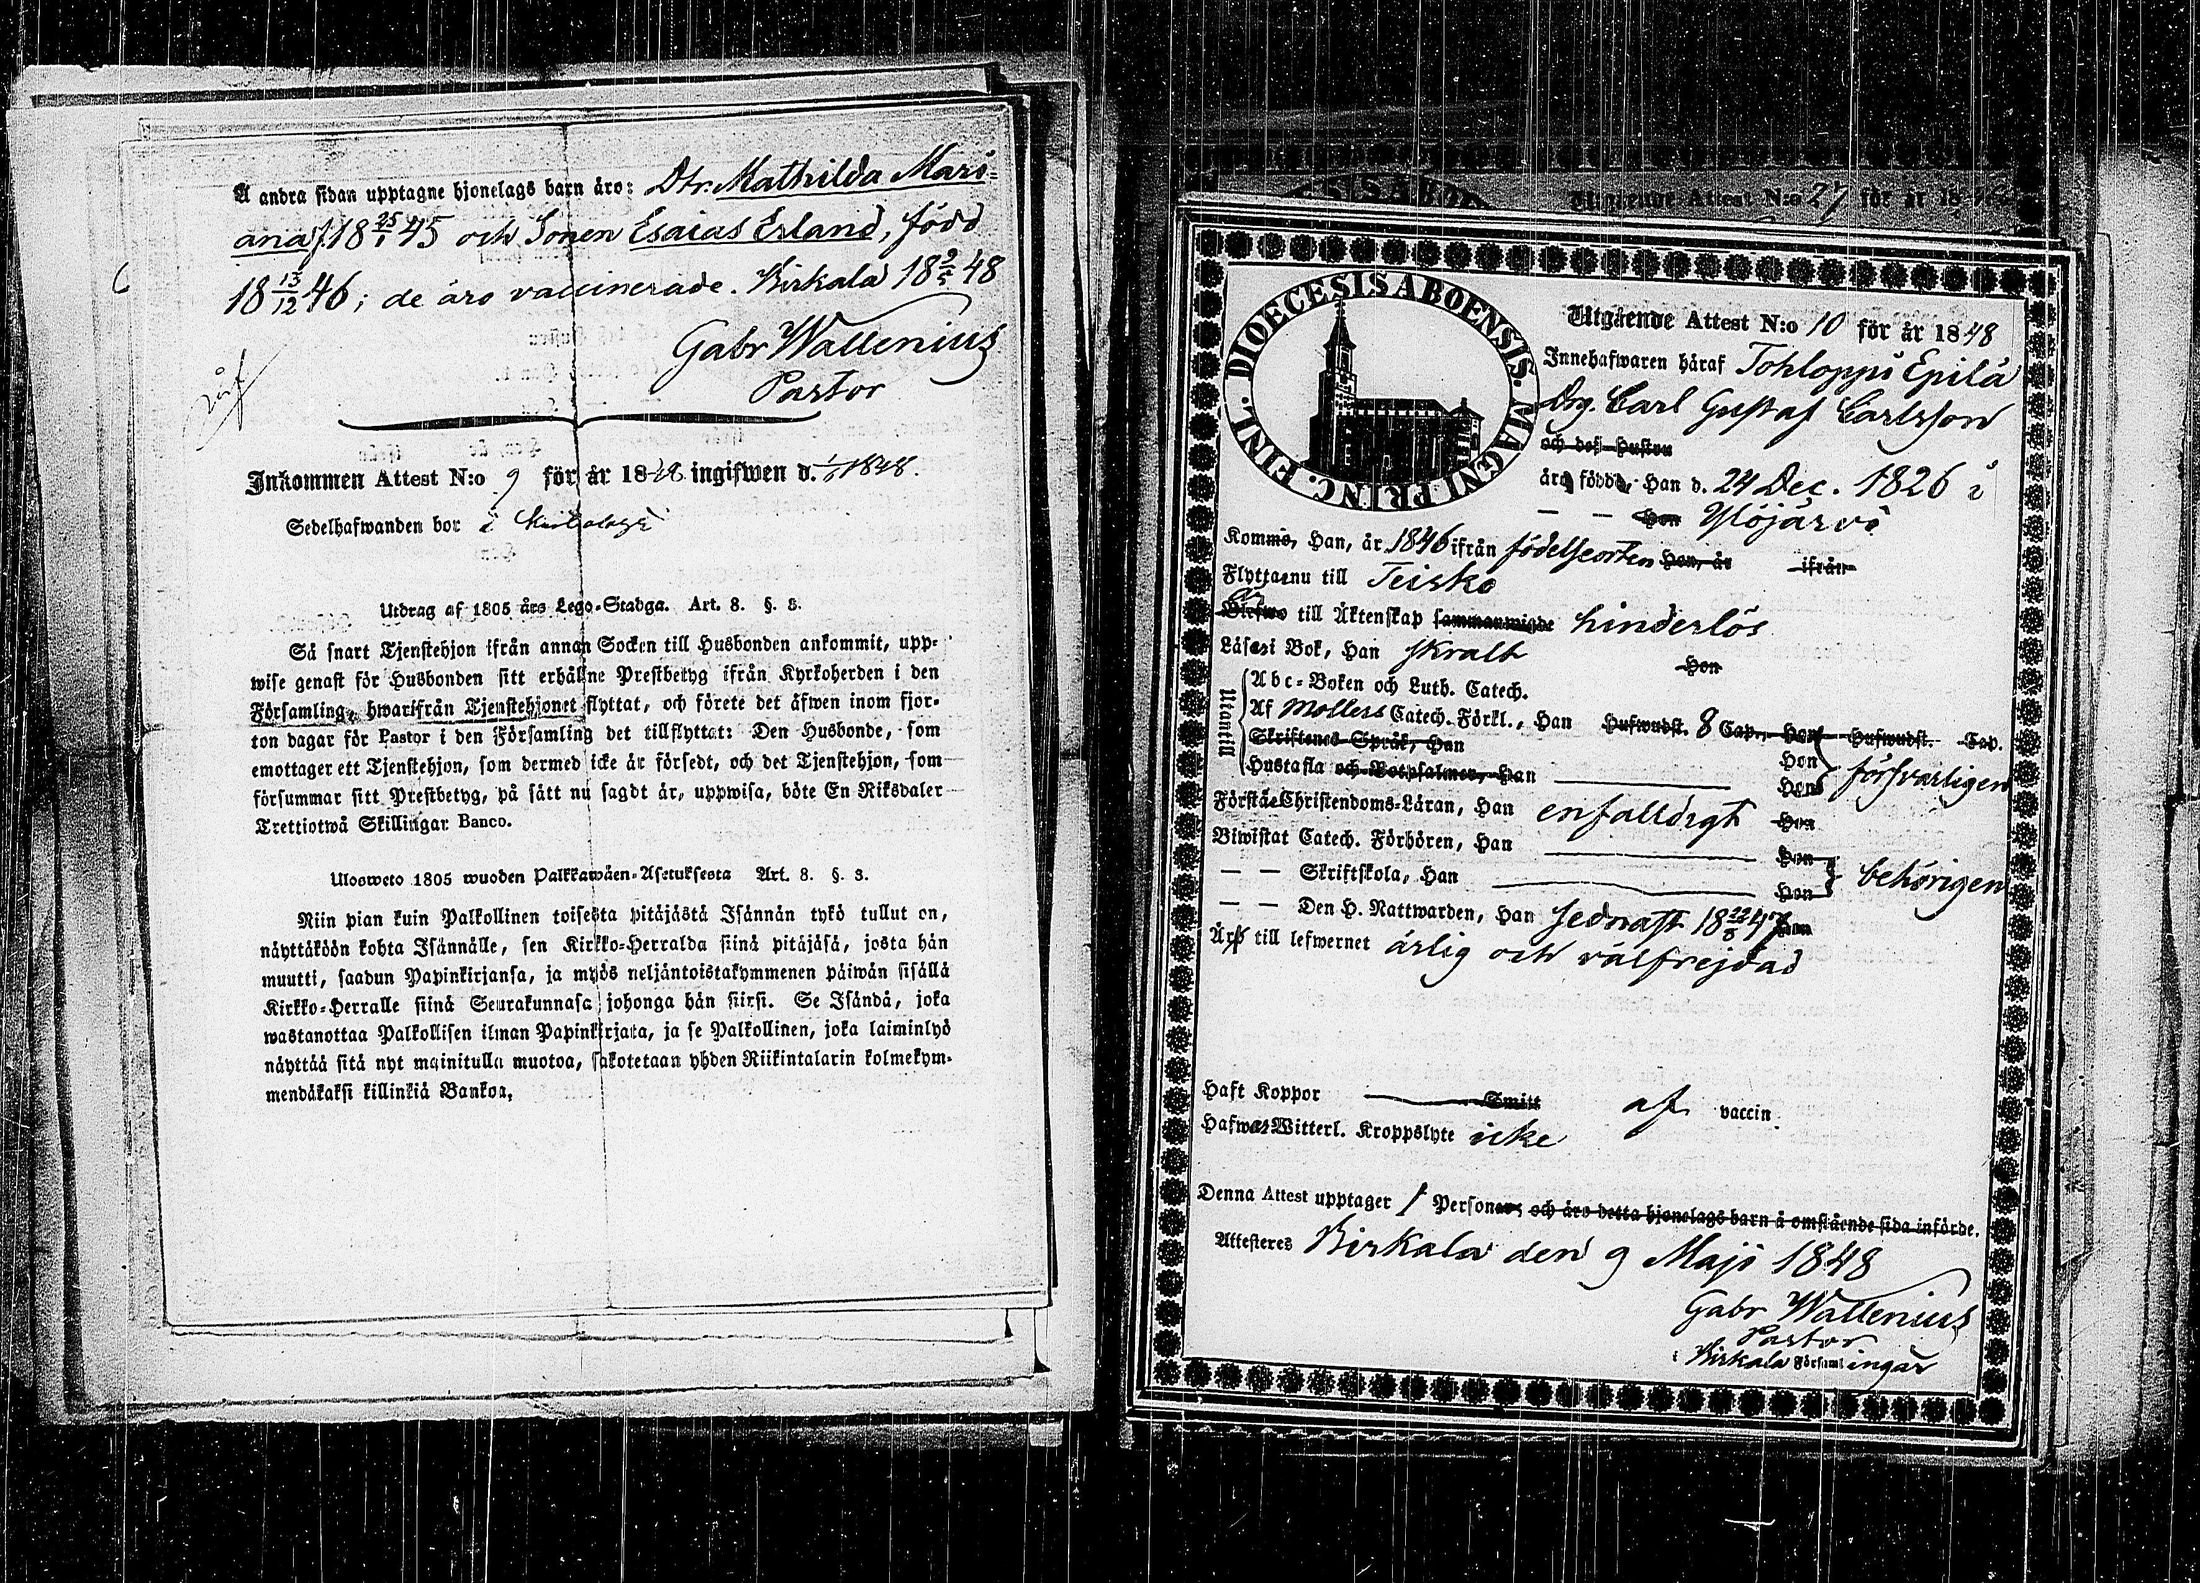 Å andra sidan upptagne hjonelags barn äro: Dtr. Mathilda Mari=
ana f. 18 25/1 45 och Sonen Esaias Erland, född
18 13/12 46; de äro vaccinerade. Birkala 18 48
Gabr Wallenius
Pastor
Inkommen Attest N:o 9 för år 1848 ingifwen d. 1848.
Sedelhafwanden bor i
Utdrag af 1805 års Lego-Stadga. Art. 8. §. 3.
Så snart Tjenstehjon ifrån annan Socken till Husbonden ankommit, upp-
wise genast för Husbonden sitt erhållne Prestbetyg ifrån Kyrkoherden i den
Församling, hwarifrån Tjenstehjonet flyttat, och förete det äfwen inom fjor-
ton dagar för Pastor i den Församling det tillflyttat: Den Husbonde, som
emottager ett Tjenstehjon, som dermed icke är försedt, och det Tjenstehjon, som
försummar sitt Prestbetyg, på sätt nu sagdt är, uppwisa, böte En Riksdaler
Trettiotwå Skillingar Banco.
Ulosweto 1805 wuoden Palkkawäen-Asetuksesta Art. 8. §. 3.
Niin pian kuin Palkollinen toisesta pitäjästä Isännän tykö tullut on,
näyttäköön kohta Isännälle, sen Kirkko-Herralda siinä pitäjäsä, josta hän
muutti, saadun Papinkirjansa, ja myös neljäntoistakymmenen päiwän sisällä
Kirkko-Herralle siinä Seurakunnasa johonga hän siirsi. Se Isändä, joka
wastanottaa Palkollisen ilman Papinkirjata, ja se Palkollinen, joka laiminlyö
näyttää sitä nyt mainitulla muotoa, sakotetaan yhden Riikintalarin kolmekym-
mendäkaksi killinkiä Bankoa.
Utgående Attest N:o 27 för år 18
DIOECESIS ABOENSIS. MAGNI PRINC. FINL.
Utgående Attest N:o 10 för år 1848
Innehafwaren häraf Tohloppi Epilä
Drg. Carl Gustaf Carlsson
och dess hustru
äro födde, Han d. 24 Dec. 1826 i
— — Hon Ylöjärvi
Kommo, Han, år 1846 ifrån födelseorten Hon, år ifrån
Flytta nu till Teisko
till Äktenskap sammanwigde hinderlös
Läsa i Bok, Han skralt Hon
Utantill
Abc-Boken och Luth. Catech.
Af Möllers Catech. Förkl., Han Hufwudst. 8 Cap., Hon Hufwudst. Cap.
Skriftenes Språk, Han Hon
Hustafla och Botpsalmer, Han Hon försvarligen
Förstå Christendoms-Läran, Han enfalldigt Hon
Biwistat Catech. Förhören, Han Hon
— — Skriftskola, Han Hon behörigen
— — Den H. Nattwarden, Han sednast 18 47 Hon
Äro till lefwernet ärlig och välfrejdad
Haft Koppor Smitt af vaccin.
Hafwa Witterl. Kroppslyte icke
Denna Attest upptager 1 Personer, och äro detta hjonelags barn å omstående sida införde.
Attesteres Birkala den 9 Maji 1848
Gabr Wallenius
Pastor
i Birkala Församlingar